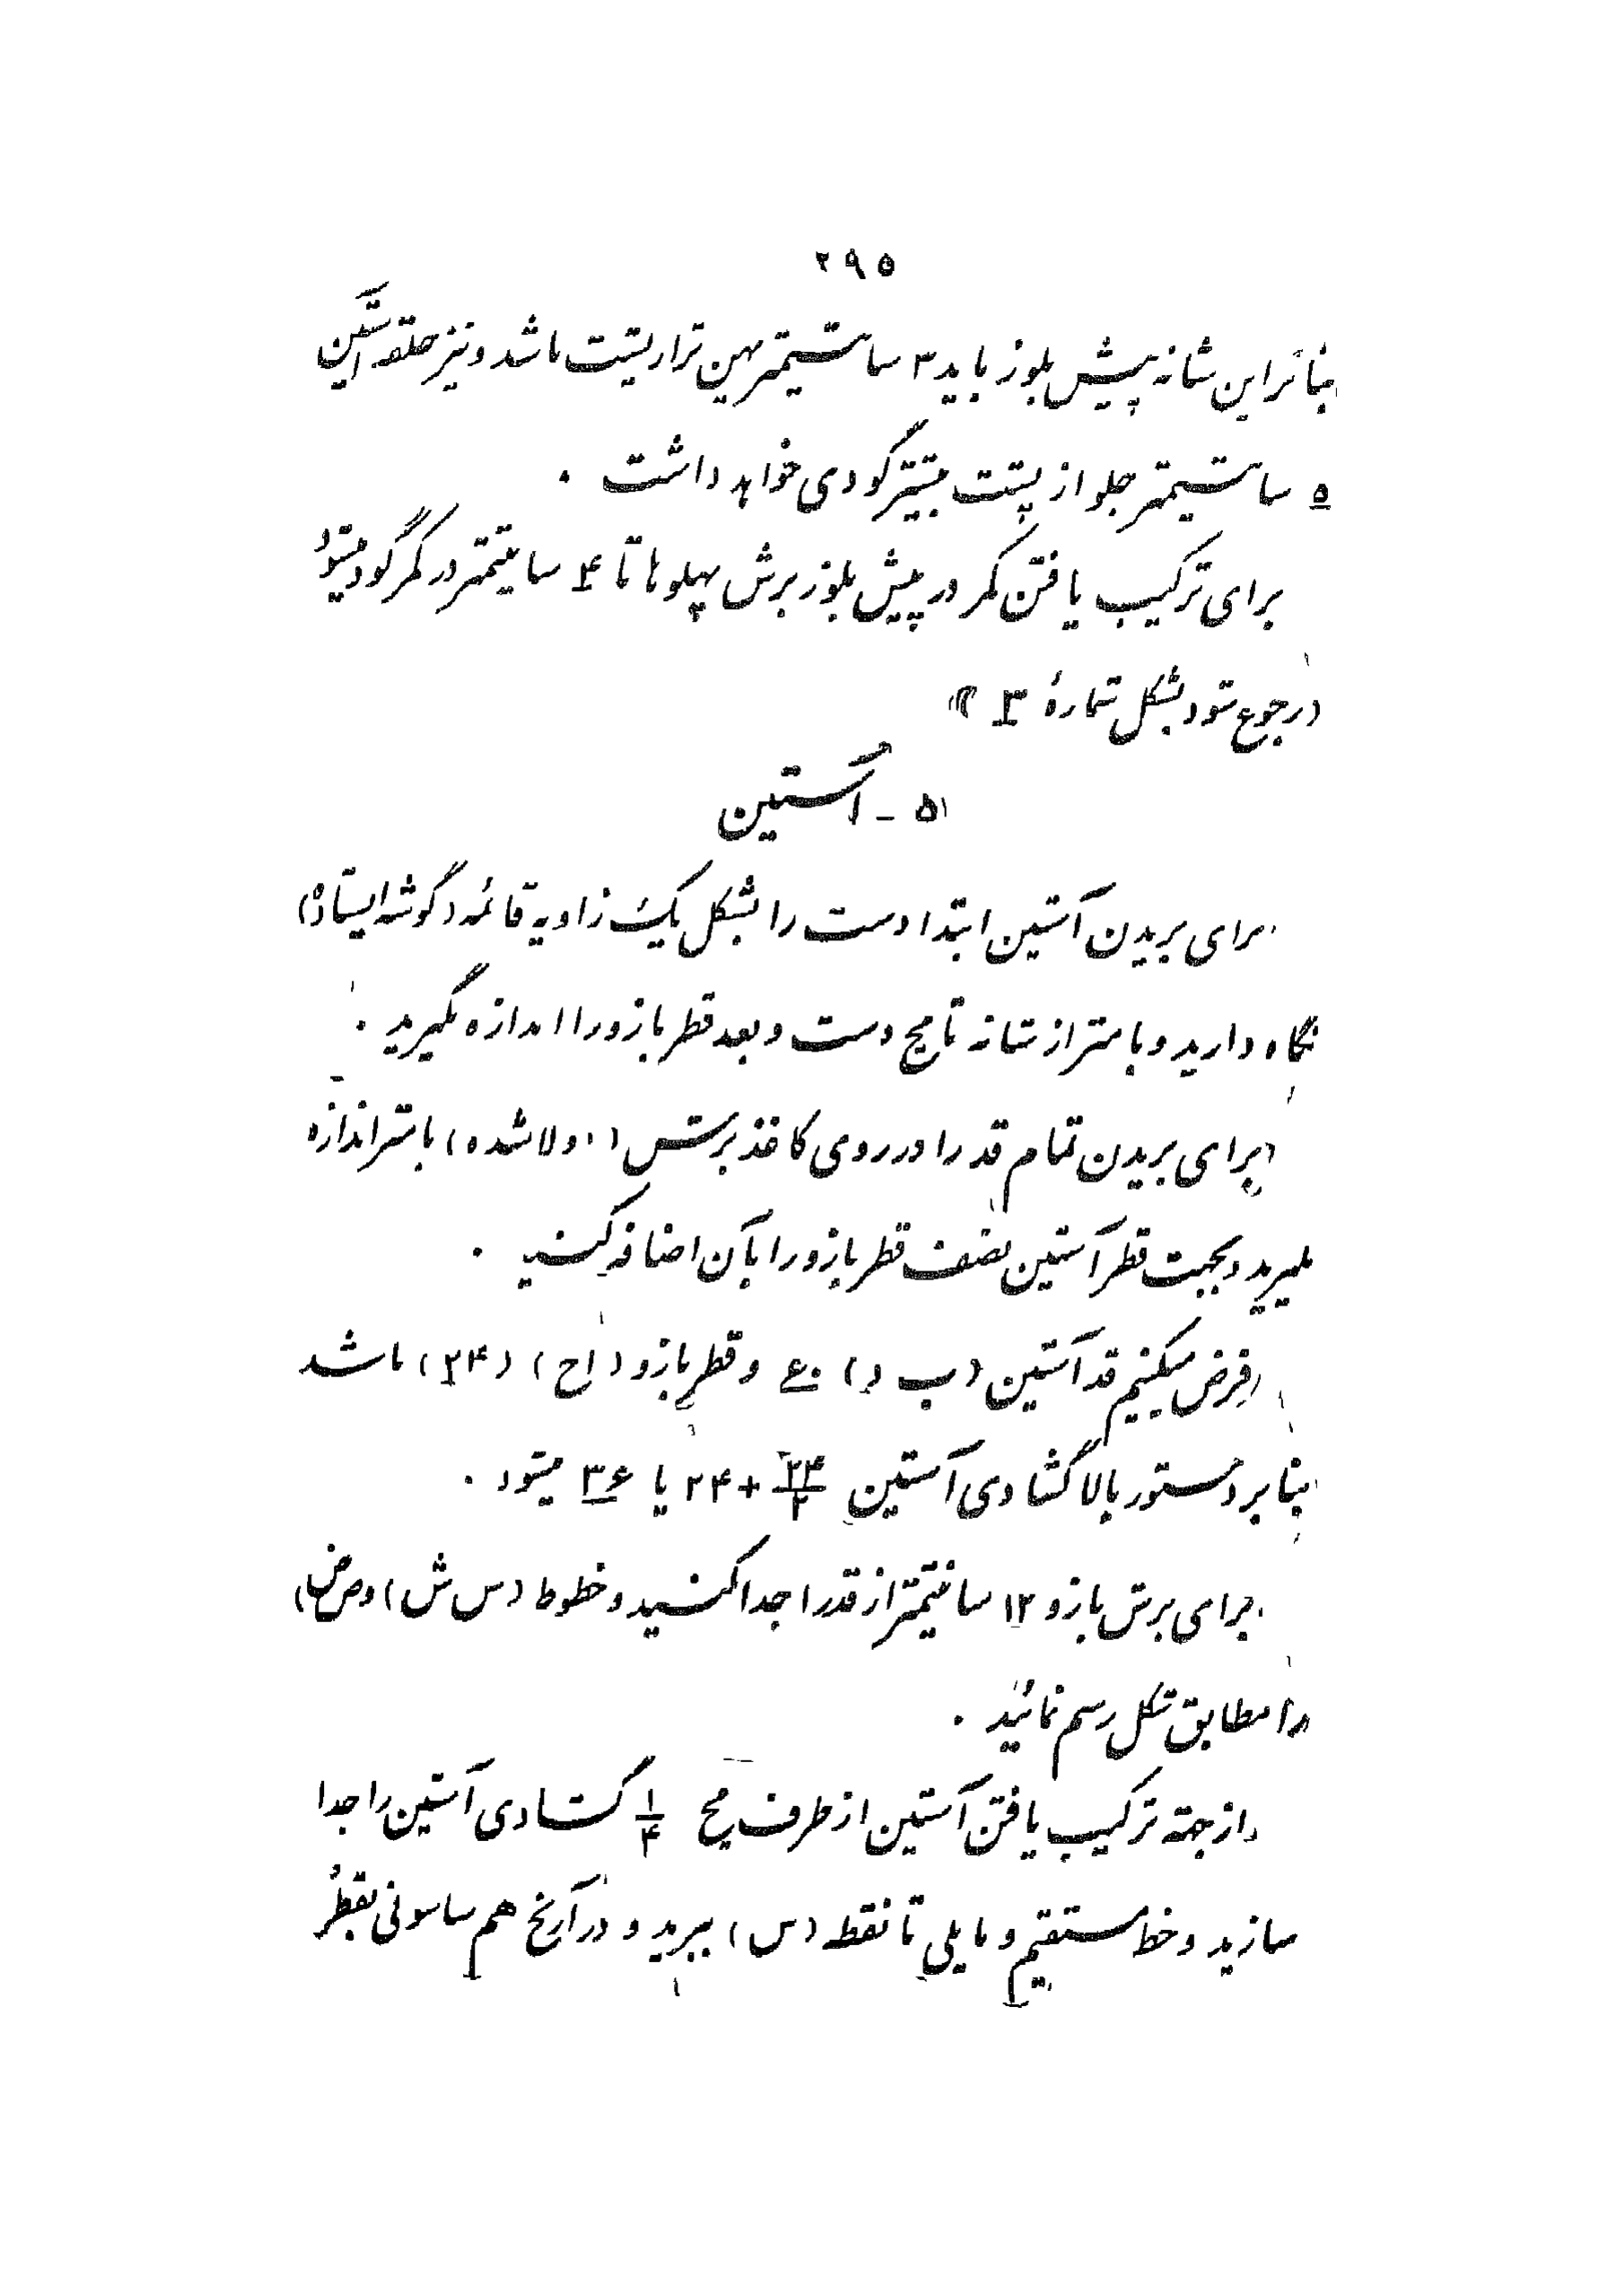 ۲۹۵
بنابراین شانه پیش بلوز باید ۳ سانتیمتر پهن تر از پشت باشد و نیز حلقه آستین
۵ سانتیمتر جلو از پشت بیشتر گودی خواهد داشت .
برای ترکیب یافتن کمر در پیش بلوز برش پهلوها تا ۴ سانتیمتر در کمر گود میشود
(رجوع شود بشکل شمارهٔ ۳ )
۵ - آستین
برای بریدن آستین ابتدا دست را بشکل یک زاویه قائمه (گوشه ایستاده)
نگاه دارید و با متر از شانه تا مچ دست و بعد قطر بازو را اندازه بگیرید .
برای بریدن تمام قد را در روی کاغذ برش (دولا شده) با متر اندازه
بگیرید و بجهت قطر آستین نصف قطر بازو را بآن اضافه کنید .
فرض میکنیم قد آستین (ب د) ۶۰ و قطر بازو (اح) (۲۴) باشد
بنابر دستور بالا گشادی آستین ۲۴/۲ + ۲۴ یا ۳۶ میشود .
برای برش بازو ۱۲ سانتیمتر از قد را جدا کنید و خطوط (س ش) و (ص ض)
را مطابق شکل رسم نمائید .
از جهة ترکیب یافتن آستین از طرف مچ ۱/۴ گشادی آستین را جدا
سازید و خط مستقیم و مایلی تا نقطه (س) ببرید و در آرنج هم ساسونی بقطر